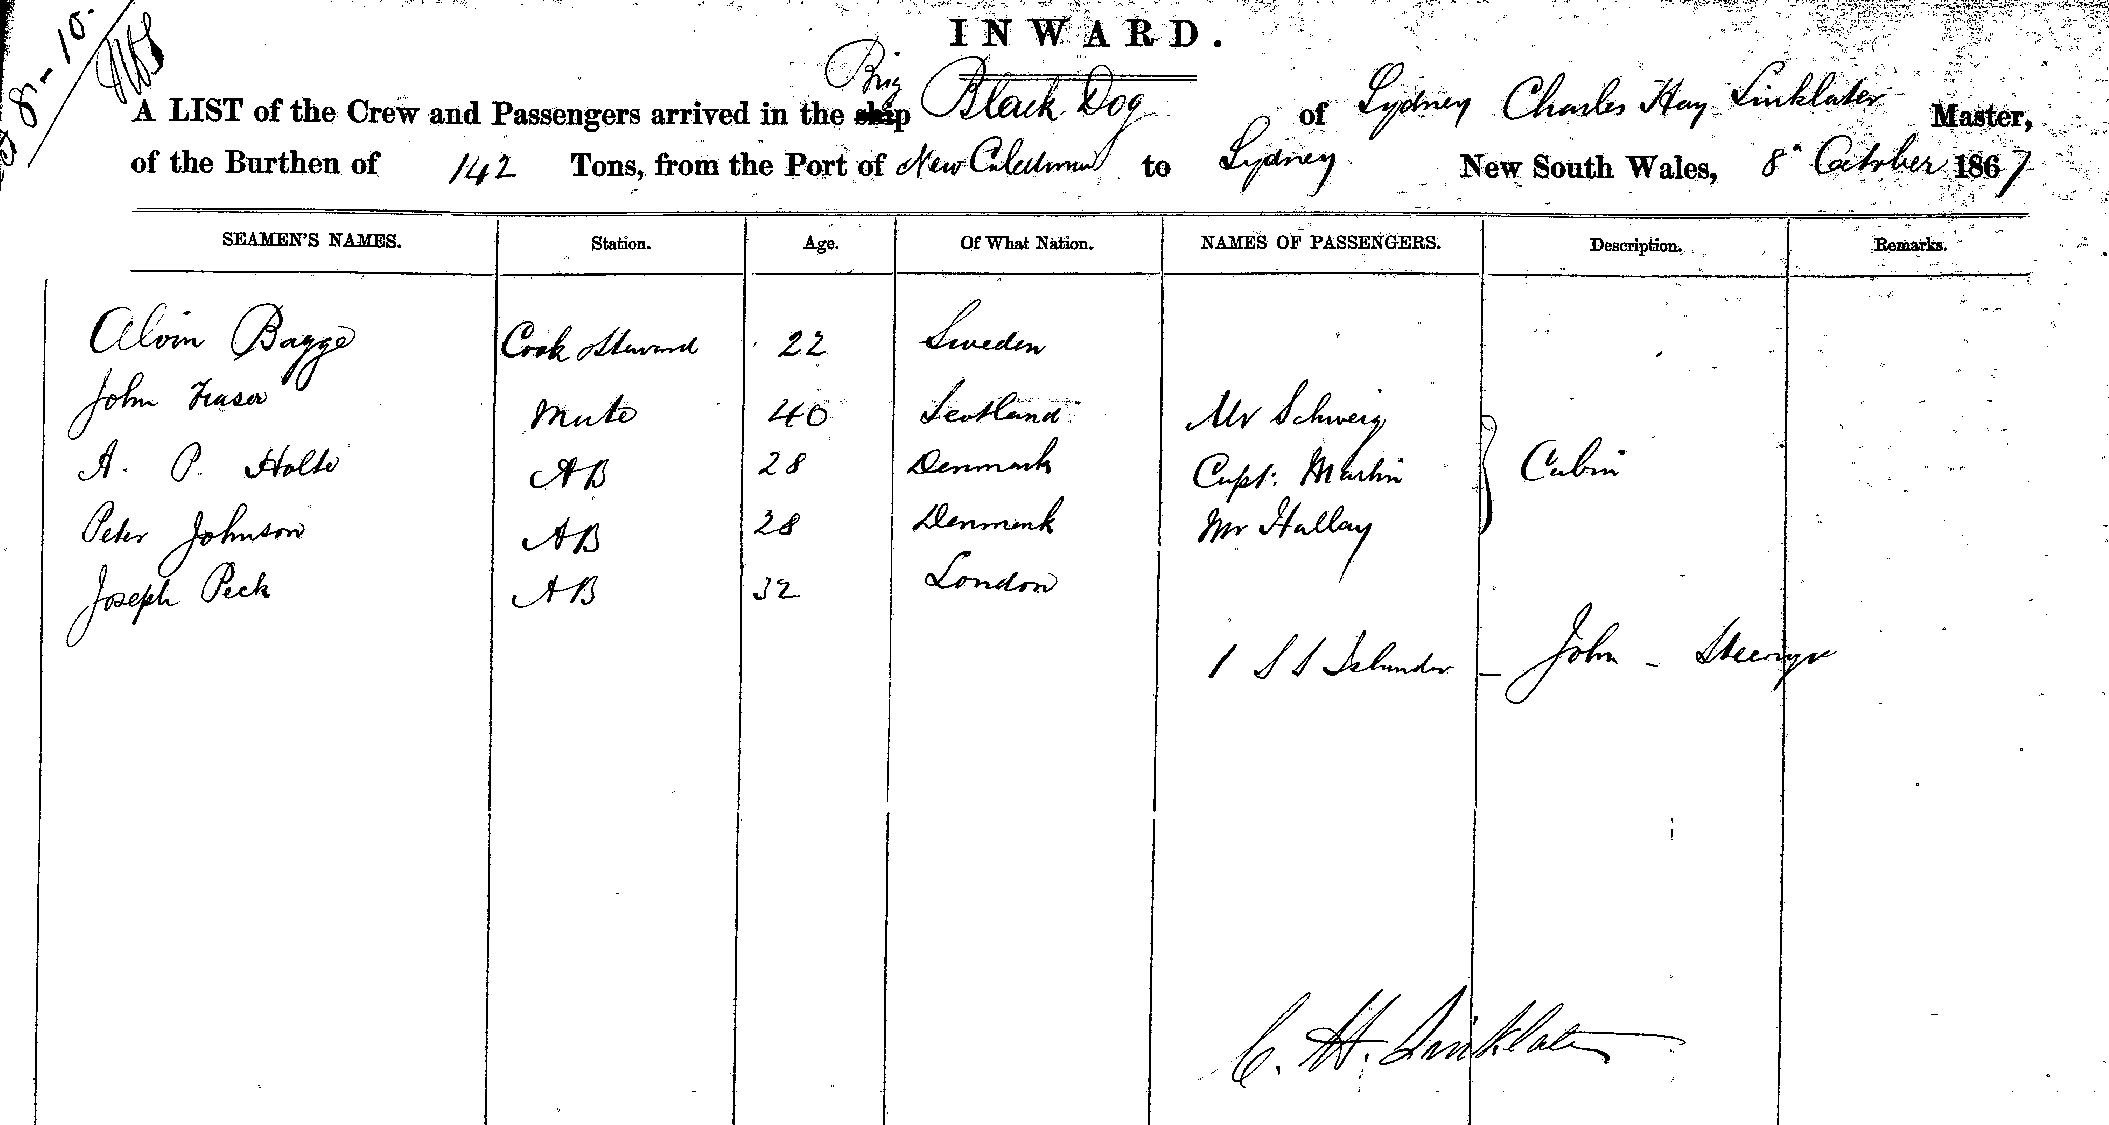 8-10
INWARD.
A LIST of the Crew and Passengers arrived in the ship Brig Black Dog of Sydney Charles Hay Linklater Master,
of the Burthen of 142 Tons, from the Port of New Caledonia to Sydney New South Wales, 8" October 1867
SEAMEN'S NAMES. Station. Age. Of What Nation. NAMES OF PASSENGERS. Description. Remarks.
Alvin Bagge Cook & Steward 22 Sweden
John Fraser Mate 40 Scotland Mr Schweig
A. P. Holte AB 28 Denmark Capt. Martin Cabin
Peter Johnson AB 28 Denmark Mr Hallay
Joseph Peck AB 32 London
1 S S Islander - John - Steerage
C. H. Linklater